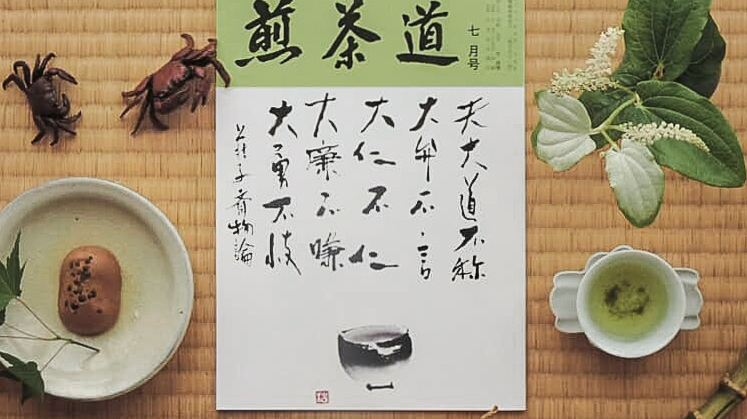 道茶煎
七月号
夫大道不称
大弁不言
大仁不仁
大廉不嗛
大勇不忮
荘子斉物論